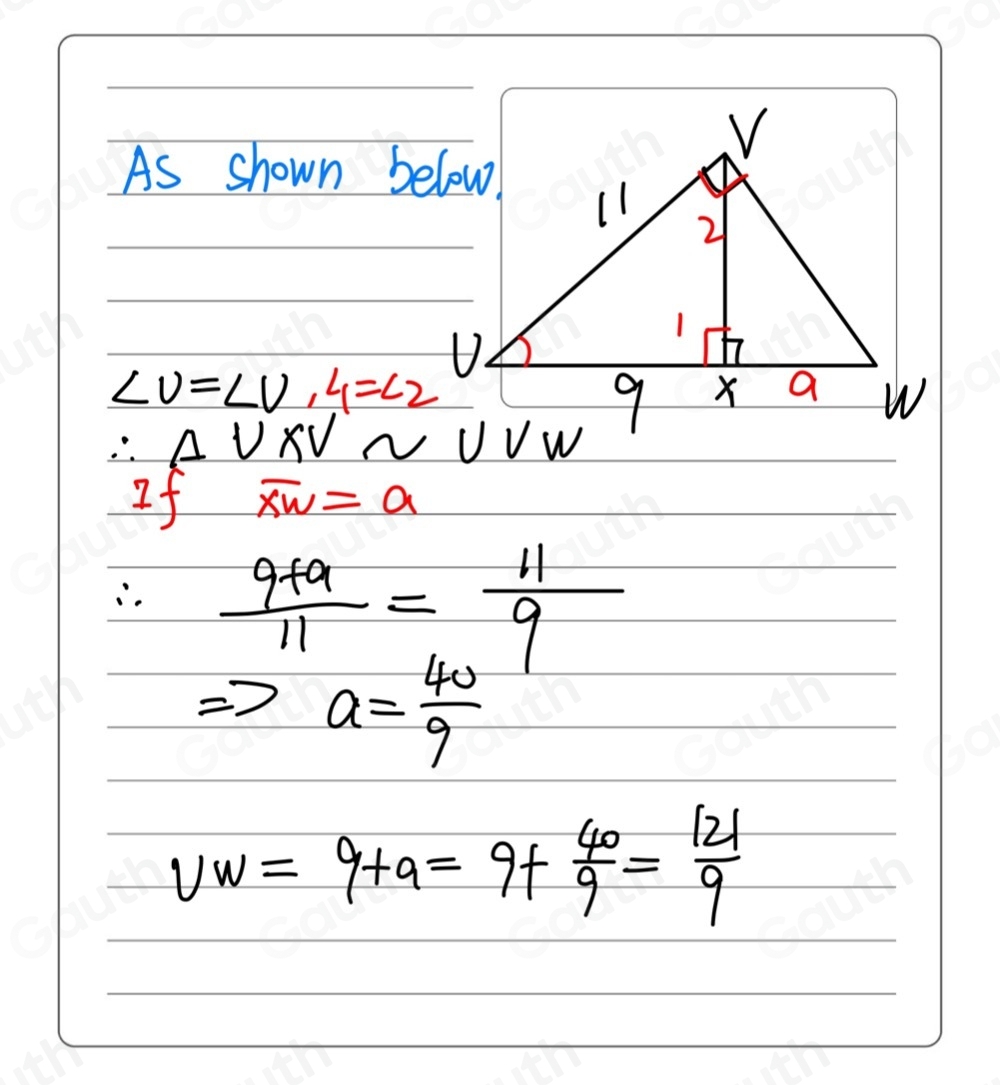 As shown below.
V
11
2
1
U
9
x
a
W
∠U=∠U, ∠1=∠2
∴ Δ UXV ~ UVW
If \overline{XW} = a
∴ \frac{9+a}{11} = \frac{11}{9}
=> a = \frac{40}{9}
UW = 9+a = 9+\frac{40}{9} = \frac{121}{9}
Gauth